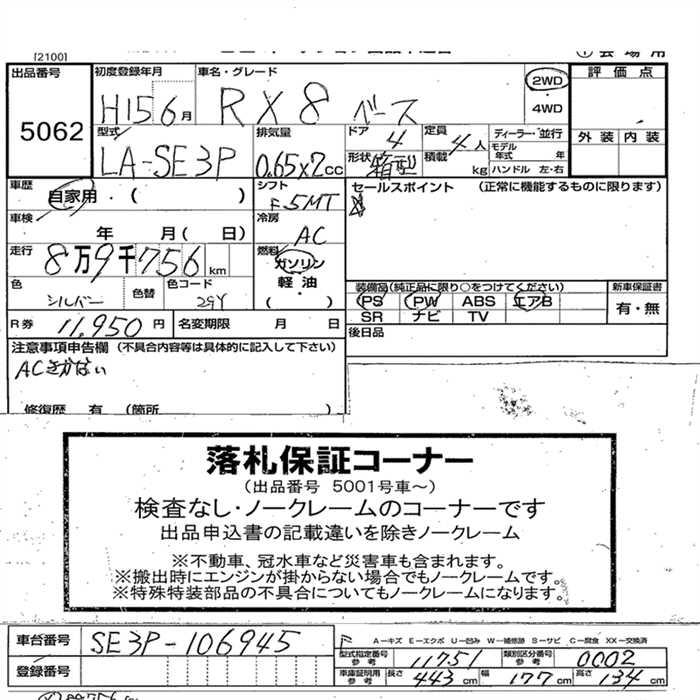 [2100]
出品番号 5062
初度登録年月 H15 6月
車名・グレード RX8 ベース
2WD
・
4WD
評価点
外装 内装
型式 LA-SE3P
排気量 0.65×2cc
ドア 4
定員 4人
形状 箱型
積載 kg
ディーラー・並行
モデル年式 年
ハンドル 左・右
車歴 自家用・( )
シフト F5MT
セールスポイント (正常に機能するものに限ります)
車検 年 月( 日)
冷房 AC
走行 8万9千756km
燃料 ガソリン
軽油・
( )
色 シルバー
色替
色コード 29Y
装備品(純正品に限り○をつけてください)
PS PW ABS エアB
SR ナビ TV
新車保証書
有・無
R券 11,950円
名変期限 月 日
後日品
注意事項申告欄 (不具合内容等は具体的に記入して下さい)
ACきかない
修復歴 有 (箇所 )
落札保証コーナー
(出品番号 5001号車~)
検査なし・ノークレームのコーナーです
出品申込書の記載違いを除きノークレーム
※不動車、冠水車など災害車も含まれます。
※搬出時にエンジンが掛からない場合でもノークレームです。
※特殊特装部品の不具合についてもノークレームになります。
車台番号 SE3P-106945
A-キズ E-エクボ U-凹み W-補修跡 S-サビ C-腐食 XX-交換済
型式指定番号 参考 11751
類別区分番号 参考 0002
登録番号
車庫証明用 参考 長さ 443cm 幅 177cm 高さ 134cm